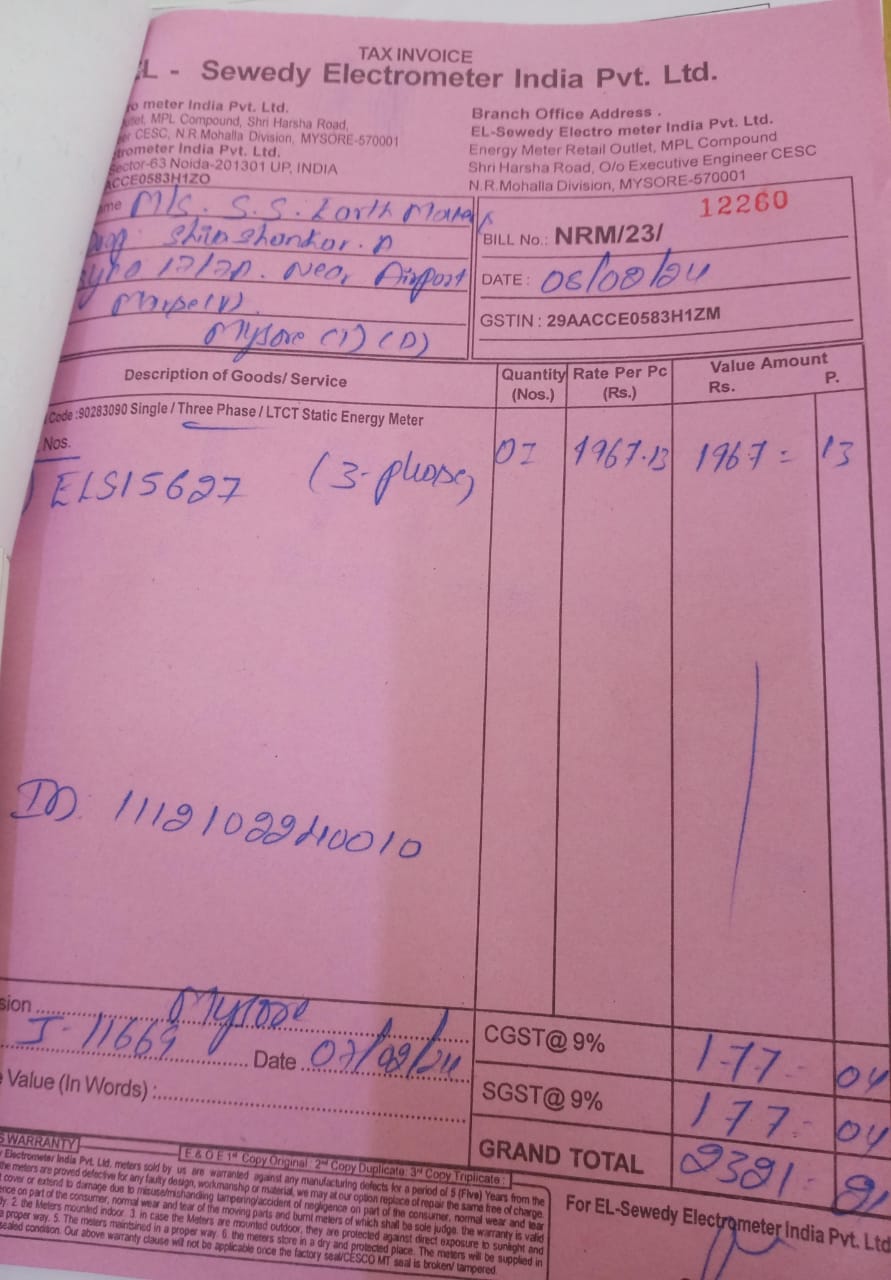 TAX INVOICE
EL - Sewedy Electrometer India Pvt. Ltd.
ro meter India Pvt. Ltd.
tlet, MPL Compound, Shri Harsha Road,
er CESC, N.R.Mohalla Division, MYSORE-570001
trometer India Pvt. Ltd.
ector-63 Noida-201301 UP, INDIA
ACCE0583H1ZO
Branch Office Address .
EL-Sewedy Electro meter India Pvt. Ltd.
Energy Meter Retail Outlet, MPL Compound
Shri Harsha Road, O/o Executive Engineer CESC
N.R.Mohalla Division, MYSORE-570001
ame M/s. S.S. Earth
Shivshankar.
17/ Near Airport
Mysore (T) (D)
12260
BILL No.: NRM/23/
DATE : 08/08/24
GSTIN : 29AACCE0583H1ZM
Description of Goods/ Service
Quantity (Nos.)
Rate Per Pc (Rs.)
Value Amount
Rs. P.
Code :90283090 Single / Three Phase / LTCT Static Energy Meter
Nos.
ELS15627 (3-phase) 01 1967.13 1967 = 13
ID. 1112102240010
sion Mysore
J-11669 Date 07/08/24
Value (In Words) :
CGST@ 9% 177 - 04
SGST@ 9% 177 - 04
GRAND TOTAL 2321 - 21
S WARRANTY
E & O E 1st Copy Original 2nd Copy Duplicate 3rd Copy Triplicate :
Electrometer India Pvt. Ltd, meters sold by us are warranted against any manufacturing defects for a period of 5 (Five) Years from the
the meters are proved defective for any faulty design, workmanship or material, we may at our option replace of repair the same free of charge.
t cover or extend to damage due to misuse/mishandling tampering/accident of negligence on part of the consumer, normal wear and tear
ence on part of the consumer, normal wear and tear of the moving parts and burnt meters of which shall be sole judge. the warranty is valid
ly. 2. the Meters mounted indoor. 3. in case the Meters are mounted outdoor, they are protected against direct exposure to sunlight and
a proper way. 5. The meters maintained in a proper way. 6. the meters store in a dry and protected place. The meters will be supplied in
sealed condition. Our above warranty clause will not be applicable once the factory seal/CESCO MT seal is broken/ tampered.
For EL-Sewedy Electrometer India Pvt. Ltd